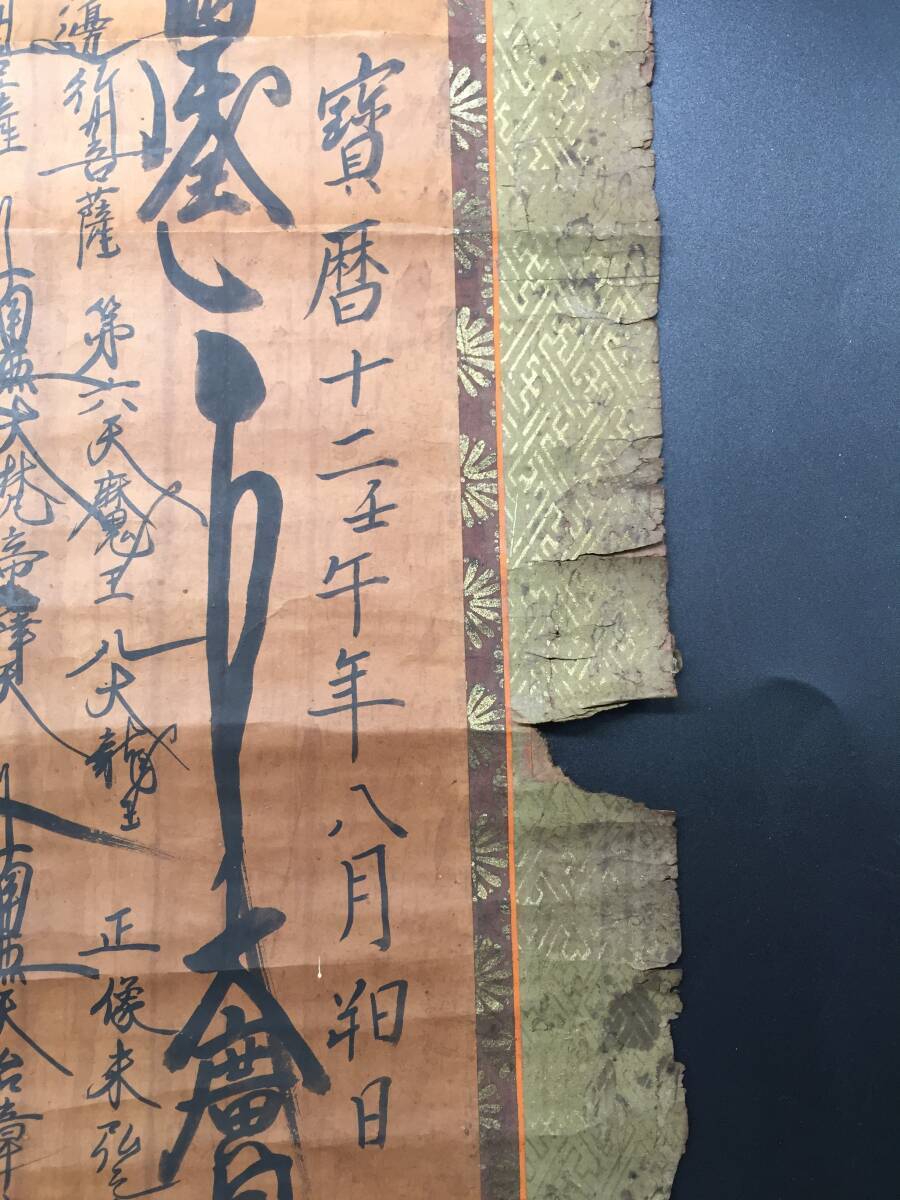 寶暦十二壬午年八月朔日
大廣目
邊行菩薩 第六天魔王 八大龍王 正像末弘之
南無大梵帝釋天 南無天台章